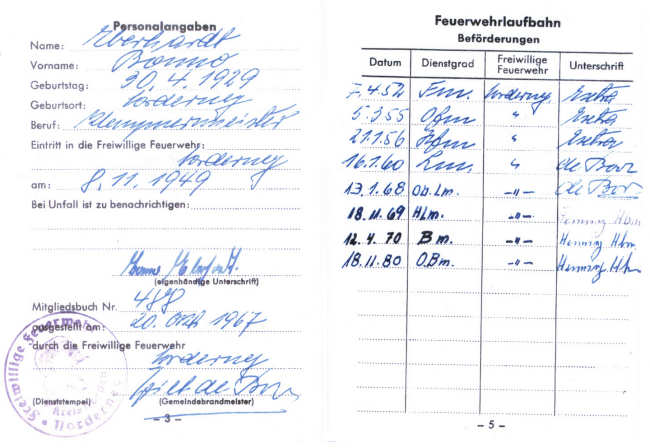 Personalangaben
Name: Eberhardt
Vorname: Bonno
Geburtstag: 30.4.1929
Geburtsort: Norderney
Beruf: Klempnermeister
Eintritt in die Freiwillige Feuerwehr:
Norderney
am: 8.11.1949
Bei Unfall ist zu benachrichtigen:
(eigenhändige Unterschrift)
Mitgliedsbuch Nr. 488
ausgestellt am: 20. Okt. 1967
durch die Freiwillige Feuerwehr
Norderney
(Dienststempel) (Gemeindebrandmeister)
Freiwillige Feuerwehr
Norderney
– 3 –
Feuerwehrlaufbahn
Beförderungen
Datum Dienstgrad Freiwillige Feuerwehr Unterschrift
7.4.52 Fm. Norderney
5.3.55 Ofm "
21.1.56 "
16.1.60 Lm. " de Boer
13.1.68 Ob.Lm. -"- de Boer
18.11.69 HLm. -"- Henning Hbm
12.4.70 Bm. -"- Henning Hbm
18.11.80 O.Bm. -"- Henning
– 5 –